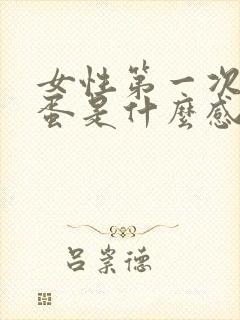 女性第一次
蛋是什麼感
吕崇德